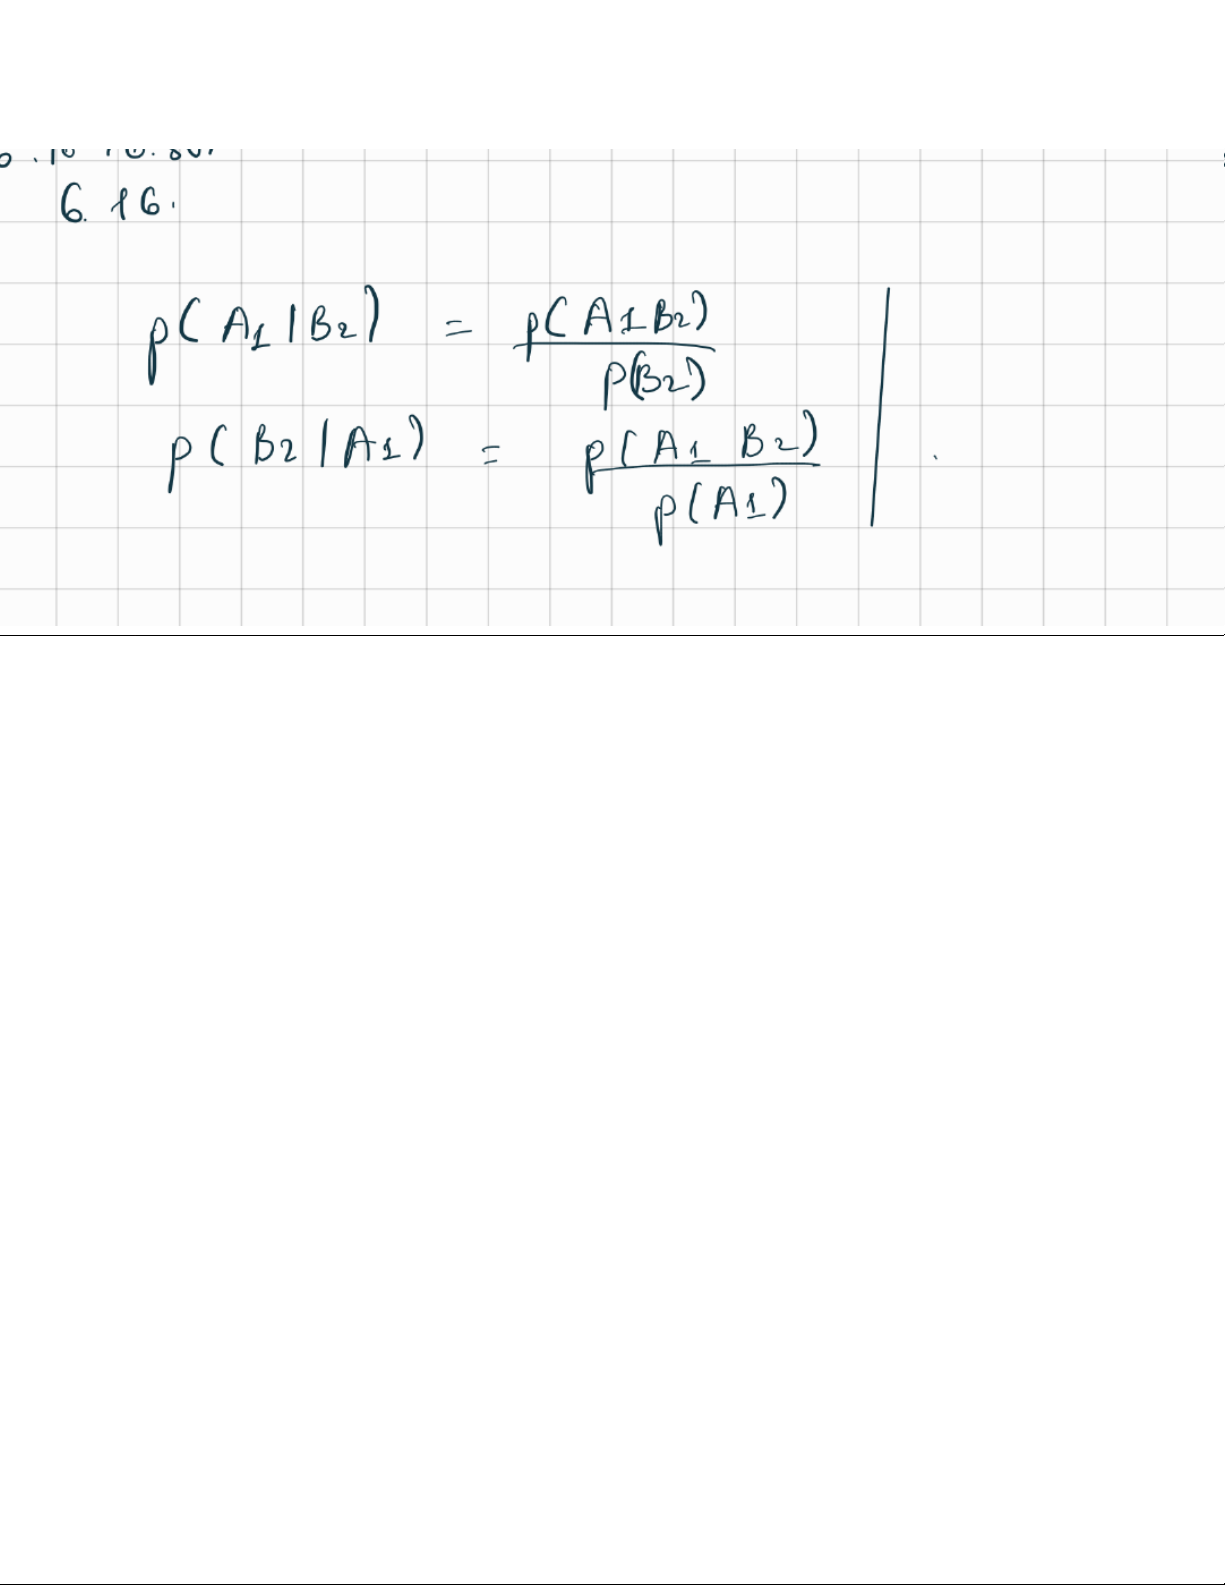 6. 16.
p(A1 | B2) = p(A1 B2) / p(B2)
p(B2 | A1) = p(A1 B2) / p(A1)